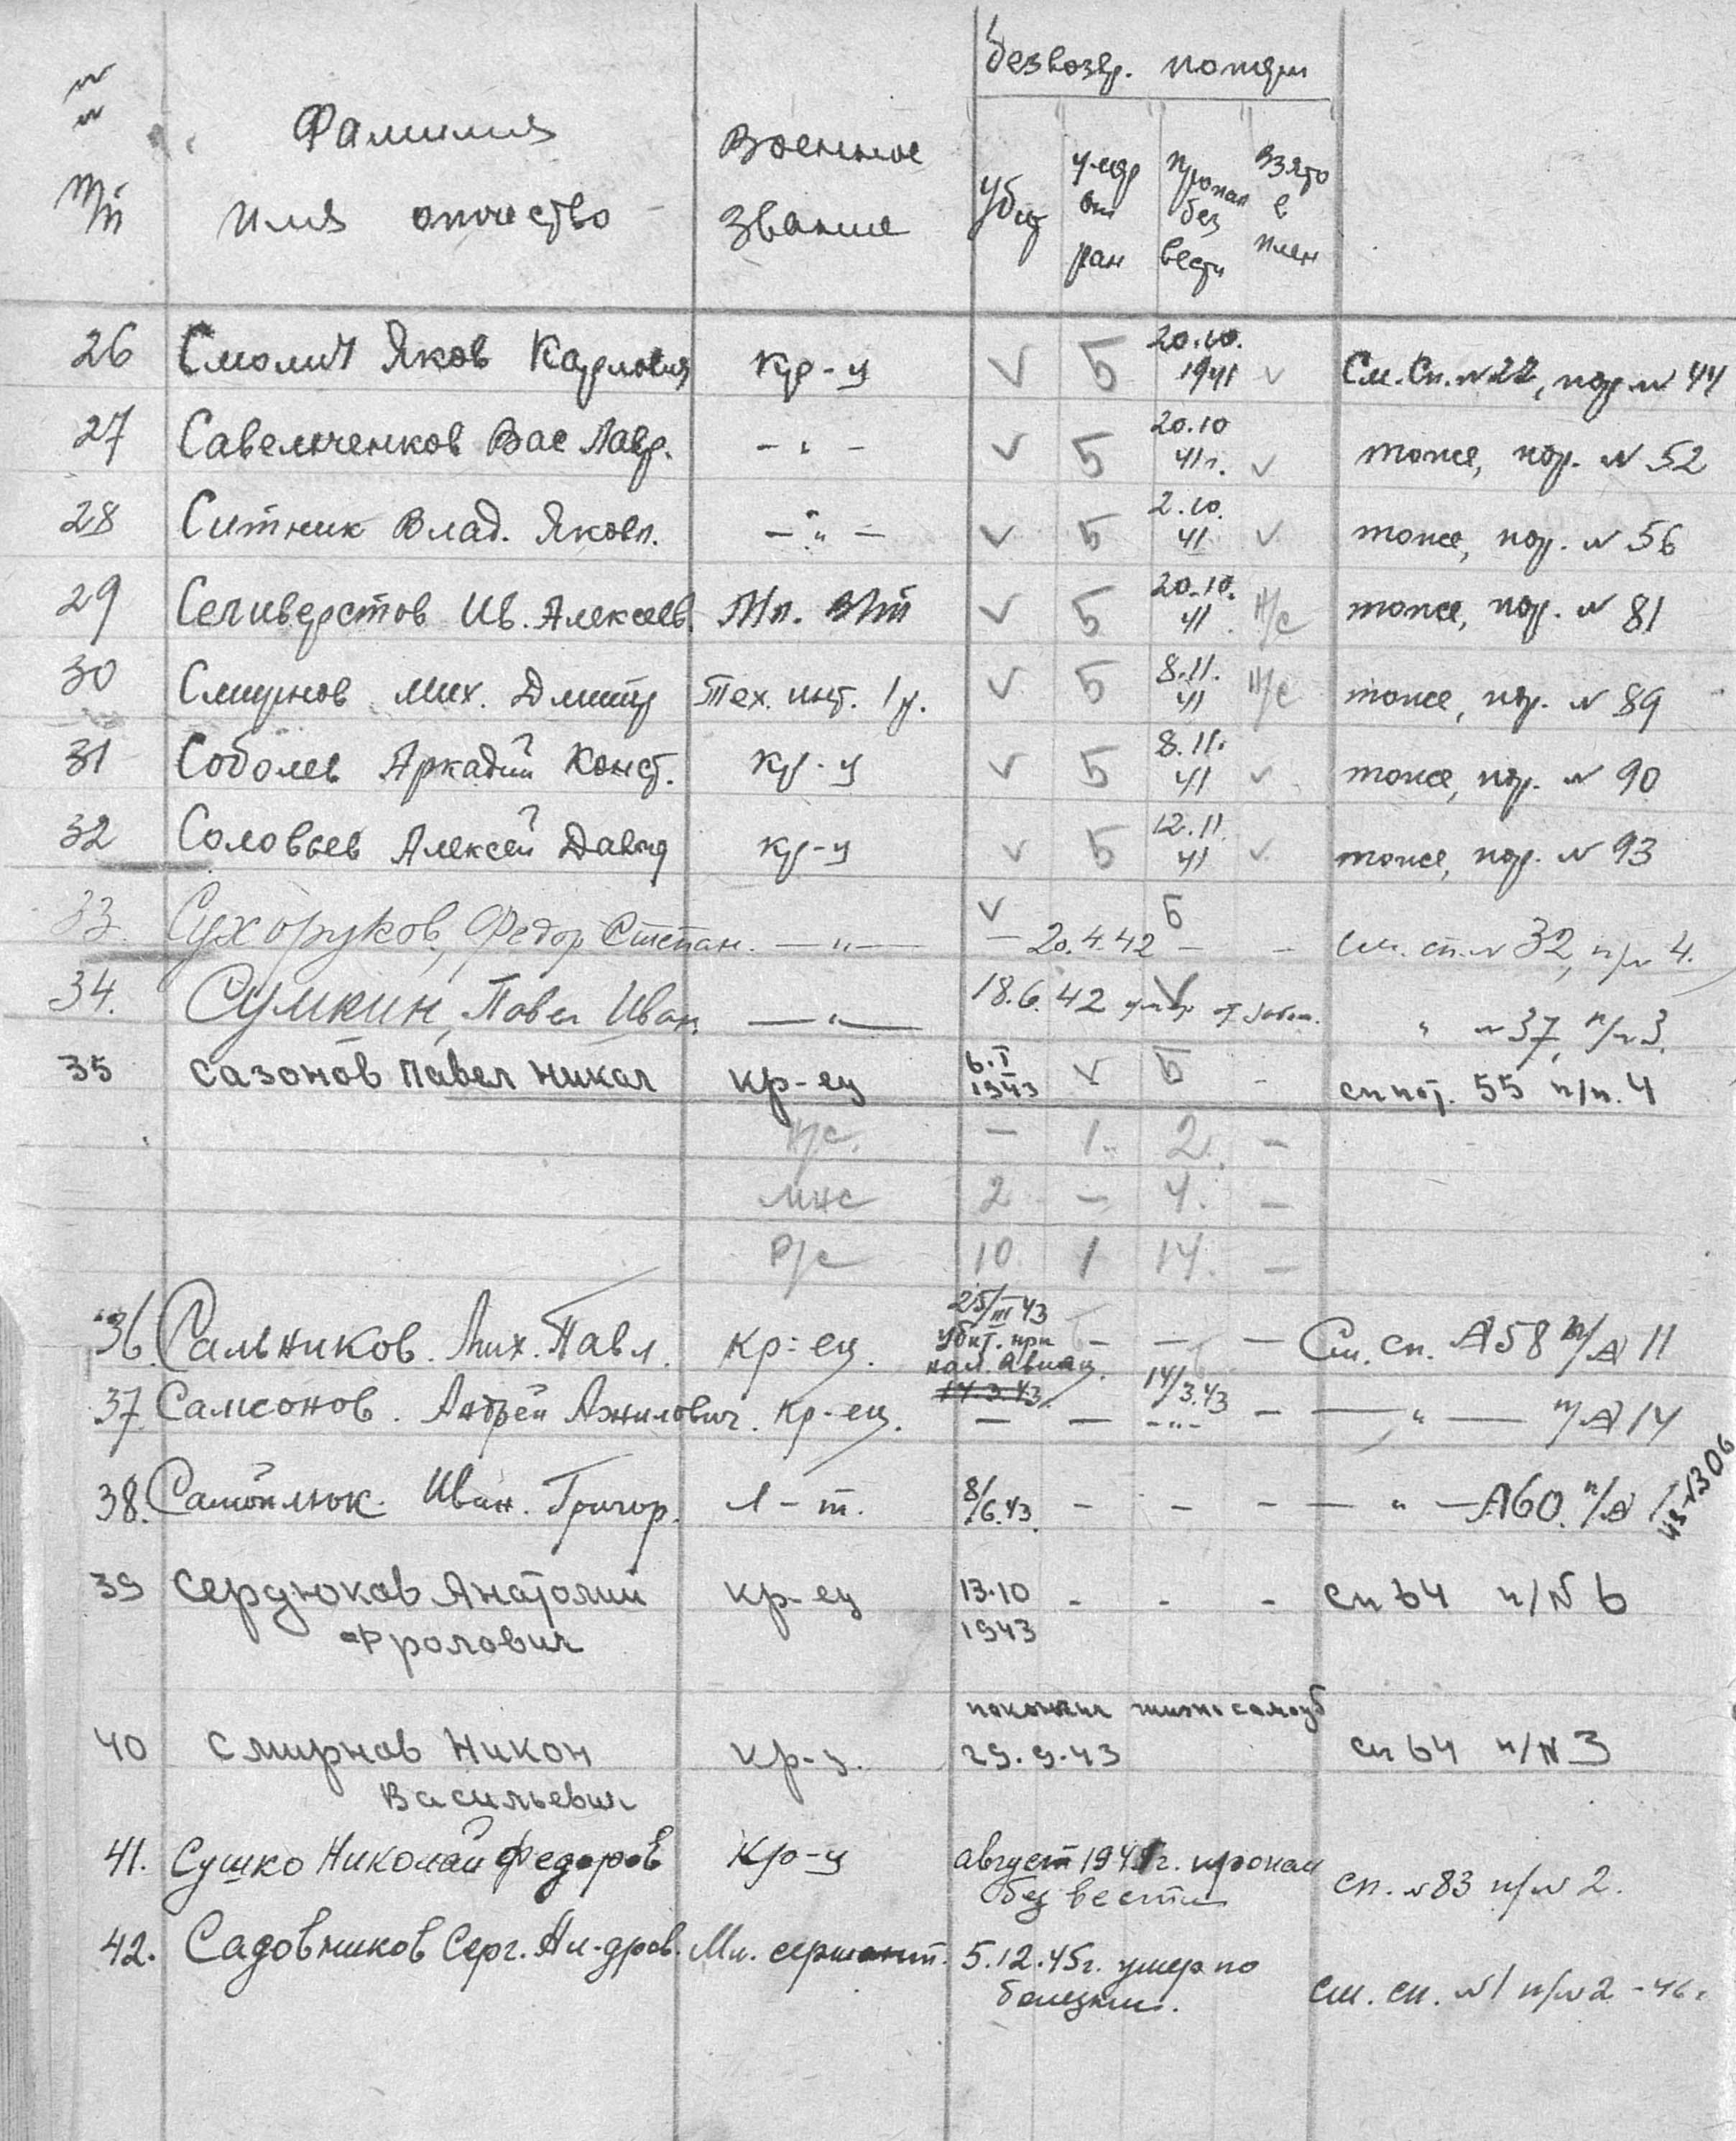 Безвозвр. потери
№ № п/п Фамилия имя отчество Военное звание Убит умер от ран пропал без вести взято в плен
26 Смолич Яков Карлович кр-ц V Б 20.10. 1941 V См. Сп. №22, пор № 44
27 Савельченков Вас Лавр. - " - V Б 20.10 41г. V тоже, пор. № 52
28 Ситник Влад. Яковл. - " - V Б 2.10. 41 V тоже, пор. № 56
29 Селиверстов Ив. Алексеев. Мл. V Б 20.10. 41 тоже, пор. № 81
30 Смирнов Мих. Дмитр Тех. инт. 1р. V Б 8.11. 41 тоже, пор. № 89
31 Соболев Аркадий Конст. кр-ц V Б 8.11. 41 V тоже, пор. № 90
32 Соловьев Алексей Давид кр-ц V Б 12.11. 41 V тоже, пор. № 93
33. Сухоруков, Федор Степан. — " — V Б
— 20.4.42 — - см. сп. № 32, п/№ 4.
34. Сумкин, Павел Иван. — " — 18.6.42 умер от забол. V " № 37, п/№ 3.
35 Сазонов Павел Никол кр-ец 6.I 1943 V Б - сп пот. 55 п/п. 4
н/с. — 1. 2. —
мнс 2 — 4. —
р/с 10. 1 14. —
36. Сальников. Мих. Павл. кр-ец. 25/III 43 убит. при нал. авиац. — — — См. сп. №58 п/№ 11
37. Самсонов. Андрей Ажилович. кр-ец. 14.3.43. — — 14/3.43 -"- — — " — п/№ 14
38. Самойлюк. Иван. Григор. л-т. 8/6.43. - - - — " — №60. п/№ 1
39 Сердюков Анатолий кр-ец 13.10 1943 - - - сп 64 п/№ 6
Фролович
покончил жизнь самоуб
40 Смирнов Никон кр-ц. 29.9.43 сп 64 п/№ 3
Васильевич
41. Сушко Николай Федоров кр-ц август 1941г. пропал без вести сп. №83 п/№ 2.
42. Садовников Серг. Ал-дров. Мл. сержант. 5.12.45г. умер по болезни. см. сп. №1 п/№2 -46г.